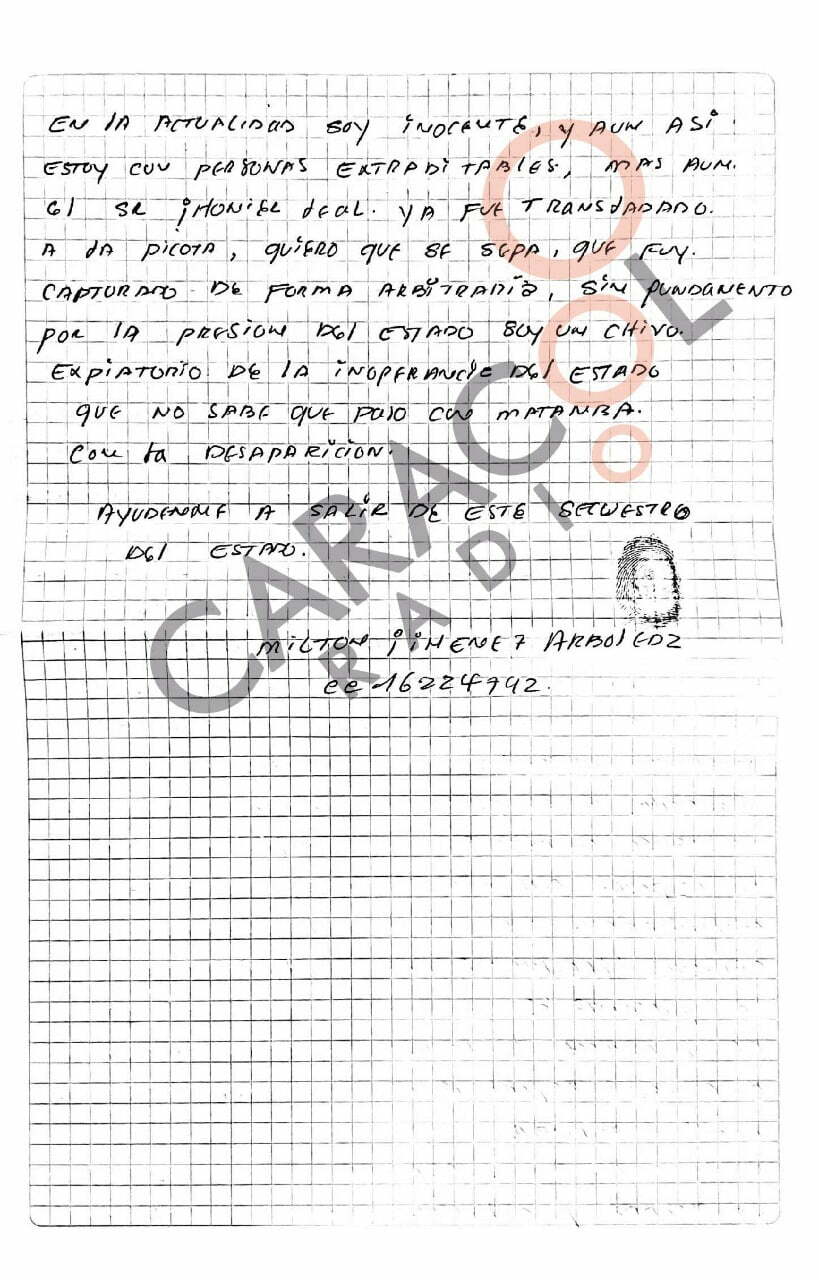 EN lA ACTUALIDAD SOY iNOCENTE, Y AUN ASi.
ESTOY CON PERSONAS EXTRADiTABLES, MAS AUN.
El SR jHONiER lEAL. YA FUE TRANSlADADO.
A lA PiCOTA, QUiERO QUE SE SEPA, QUE FUY.
CAPTURADO DE FORMA ARBiTRARiA, SiN FUNDAMENTO
POR lA PRESiON DEl ESTADO SOY UN CHiVO.
EXPiATORiO DE lA iNOPERANCiE DEl ESTADO
QUE NO SABE QUE PASO CON MATAMBA.
CON la DESAPARiCiON.
AYUDENME A SALiR DE ESTE SECUESTRO
DEl ESTADO.
MiLTON jiMENEZ ARBOlEDA
cc 16224942.
CARACOL
RADIO